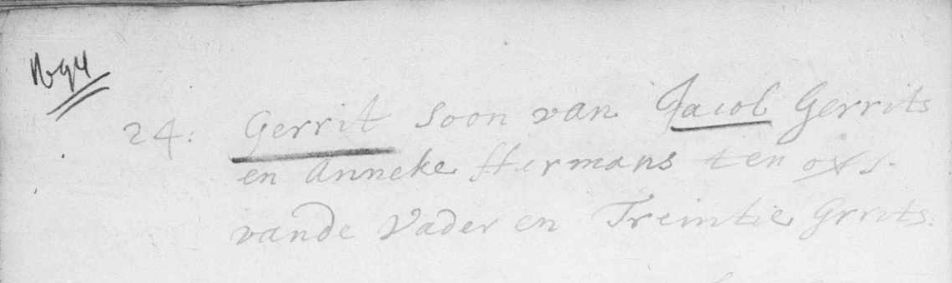 1694
24. Gerrit Soon van Jacob Gerrits
en Anneke Hermans ten ovs.
vande Vader en Treintie Grrits.